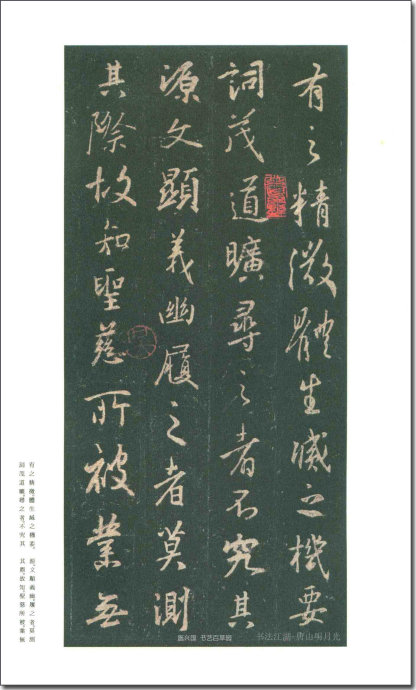 有之精微體生滅之機要
詞茂道曠尋之者不究其
源文顯義幽履之者莫測
其際故知聖慈所被業無
有之精微體生滅之機要
詞茂道曠尋之者不究其
源文顯義幽履之者莫測
其際故知聖慈所被業無
逸兴国 书艺百草园
书法江湖·唐山明月光